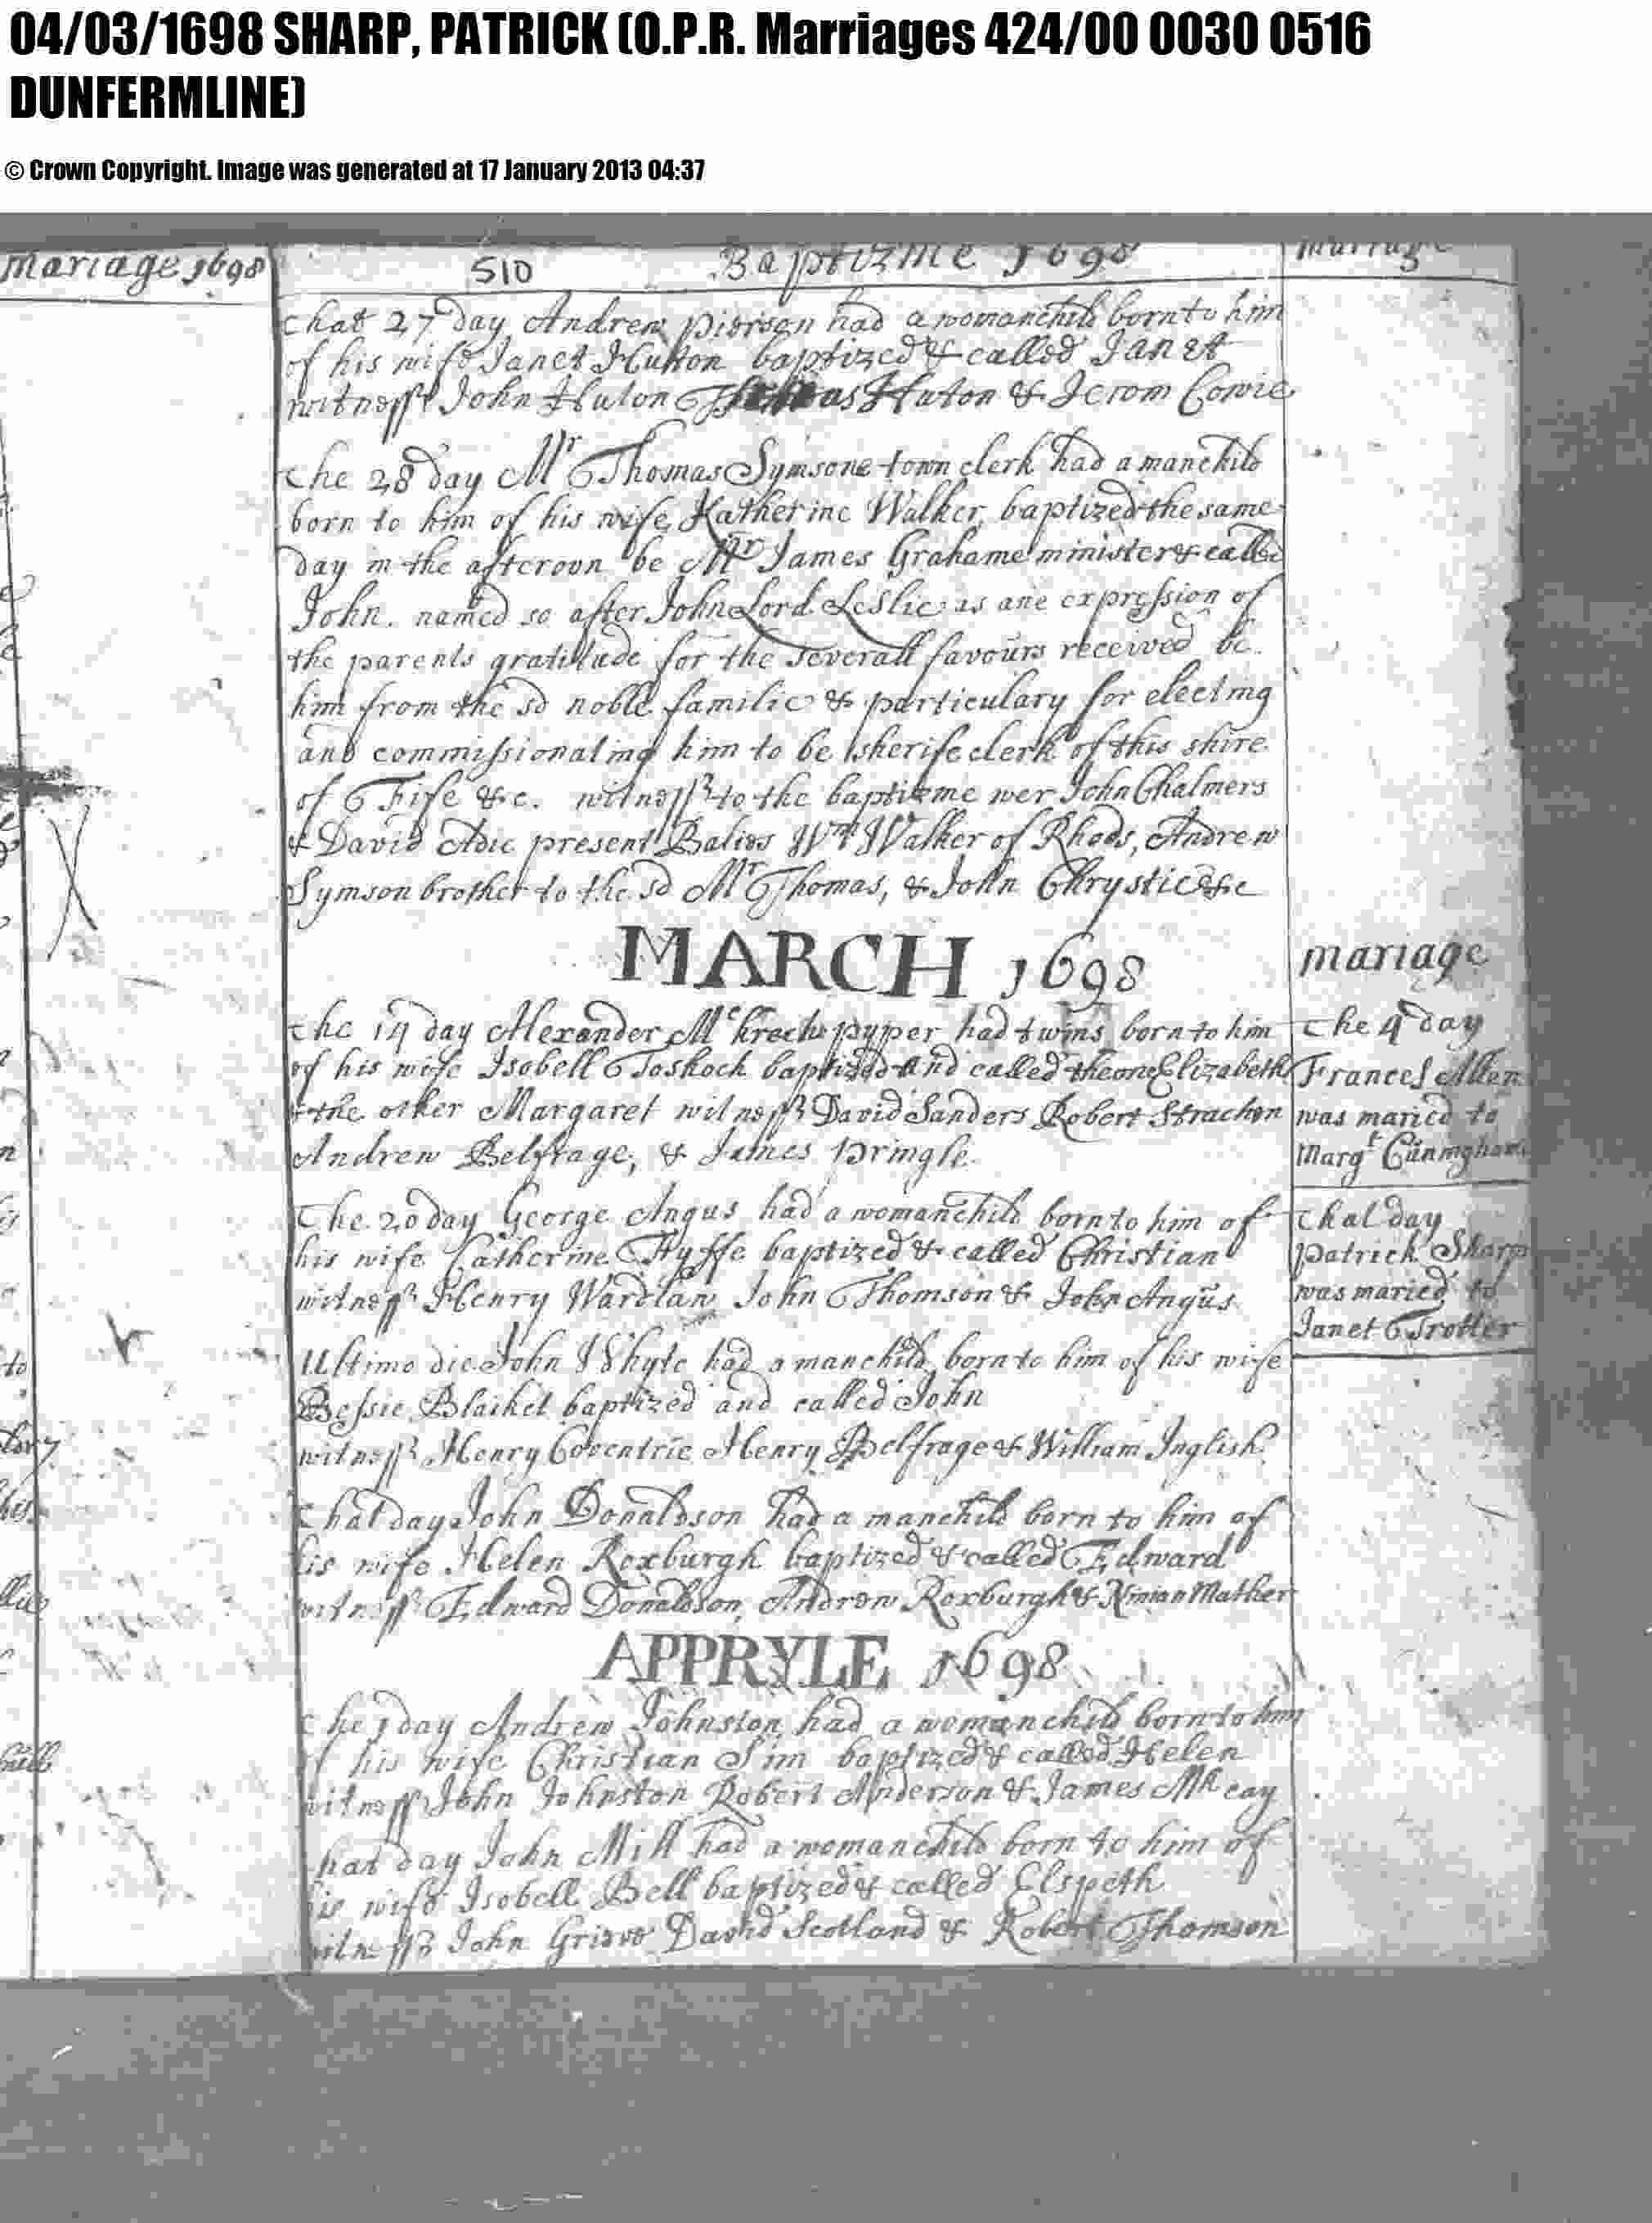 04/03/1698 SHARP, PATRICK (O.P.R. Marriages 424/00 0030 0516
DUNFERMLINE)
© Crown Copyright. Image was generated at 17 January 2013 04:37
Mariage 1698
510
Baptizme 1698
that 27 day Andrew Pierson had a womanchild born to him
of his wife Janet Huton baptized & called Janet
witnesss John Huton Thomas Huton & Jerom Cowie
The 28 day Mr Thomas Symsone town clerk had a manchild
born to him of his wife Katherine Walker baptized the same
day in the afteroon be Mr James Grahame minister & called
John. named so after John Lord Leslie as ane expression of
the parents gratitude for the severall favours received be
him from the sd noble familie & particulary for electing
and commissionating him to be sherife clerk of this shire
of Fife &c. witnesss to the baptizme wer John Chalmers
& David Adie present Balies Wm Walker of Rhods, Andrew
Symson brother to the sd Mr Thomas, & John Chrystie &c
MARCH 1698
The 14 day Alexander Mckrech pyper had twins born to him
of his wife Isobell Toshoch baptized and called the one Elizabeth
& the other Margaret witnesss David Sanders Robert Strachon
Andrew Belfrage, & James Pringle.
The 20 day George Angus had a womanchild born to him of
his wife Catherine Fyffe baptized & called Christian
witnesss Henry Wardlaw John Thomson & John Angus
Ultimo die John Whyte had a manchild born to him of his wife
Bessie Blaiket baptized and called John
witnesss Henry Coventrie Henry Belfrage & William Inglish
that day John Donaldson had a manchild born to him of
his wife Helen Roxburgh baptized & called Edward
witnesss Edward Donaldson, Andrew Roxburgh & Ninian Mather
APPRYLE 1698
The 1 day Andrew Johnston had a womanchild born to him
of his wife Christian Sim baptized & called Helen
witnesss John Johnston Robert Anderson & James Mkcay
that day John Mill had a womanchild born to him of
his wife Isobell Bell baptized & called Elspeth
witnesss John Grieve David Scotland & Robert Thomson
mariage
The 4 day
Frances Allen
was maried to
Margt Cunnigham
that day
Patrick Sharp
was maried to
Janet Trotter